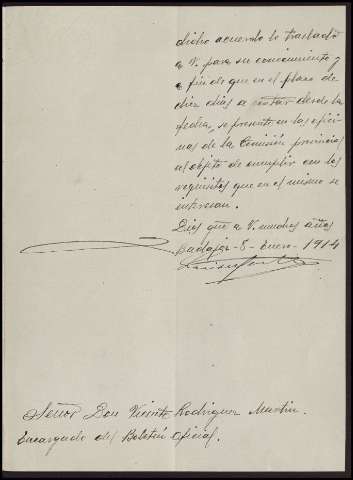 dicho acuerdo lo traslado
a V. para su conocimiento y
a fin de que en el plazo de
diez dias a contar desde la
fecha, se presente en las ofici-
nas de la Comisión provincial
al objeto de cumplir con los
requisitos que en el mismo se
interesan.
Dios gue a V. muchos años
Badajoz - 8 - Enero - 1914
Señor Don Vicente Rodriguez Martin.
Encargado del Boletin Oficial.